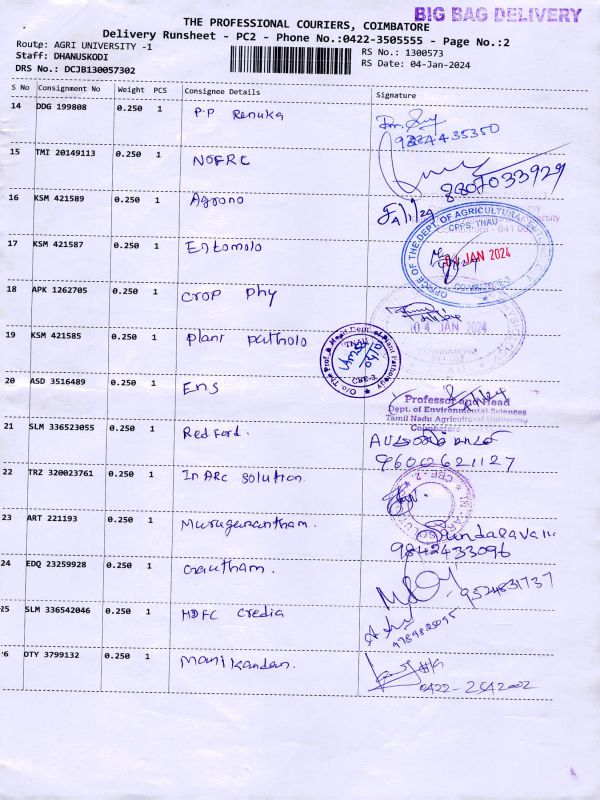 BIG BAG DELIVERY
THE PROFESSIONAL COURIERS, COIMBATORE
Delivery Runsheet - PC2 - Phone No.:0422-3505555 - Page No.:2
Route: AGRI UNIVERSITY -1
Staff: DHANUSKODI
DRS No.: DCJB130057302
RS No.: 1300573
RS Date: 04-Jan-2024
S No Consignment No Weight PCS Consignee Details Signature
14 DDG 199808 0.250 1 P.P Renuka
9384435350
15 TMI 20149113 0.250 1 NOFRC
8807033929
16 KSM 421589 0.250 1 Agrono
OFFICE OF THE DEPT. OF AGRICULTURAL
CPPS, TNAU
04 JAN 2024
COIMBATORE-3
17 KSM 421587 0.250 1 Entomolo
18 APK 1262705 0.250 1 crop Phy
04 JAN 2024
COIMBATORE
19 KSM 421585 0.250 1 plant patholo
O/o. The Prof & Head, Dept. of Plant Pathology
TNAU
CBE-3
20 ASD 3516489 0.250 1 Ens
Professor and Head
Dept. of Environmental Sciences
Tamil Nadu Agricultural University
Coimbatore
21 SLM 336523055 0.250 1 Redford.
9600621127
22 TRZ 320023761 0.250 1 InARc solution.
CBE - 2
23 ART 221193 0.250 1 Muruganantham.
9842433096
24 EDQ 23259928 0.250 1 Gautham.
9524831737
25 SLM 336542046 0.250 1 HDFC credia
26 DTY 3799132 0.250 1 Manikandan.
0422-2542002